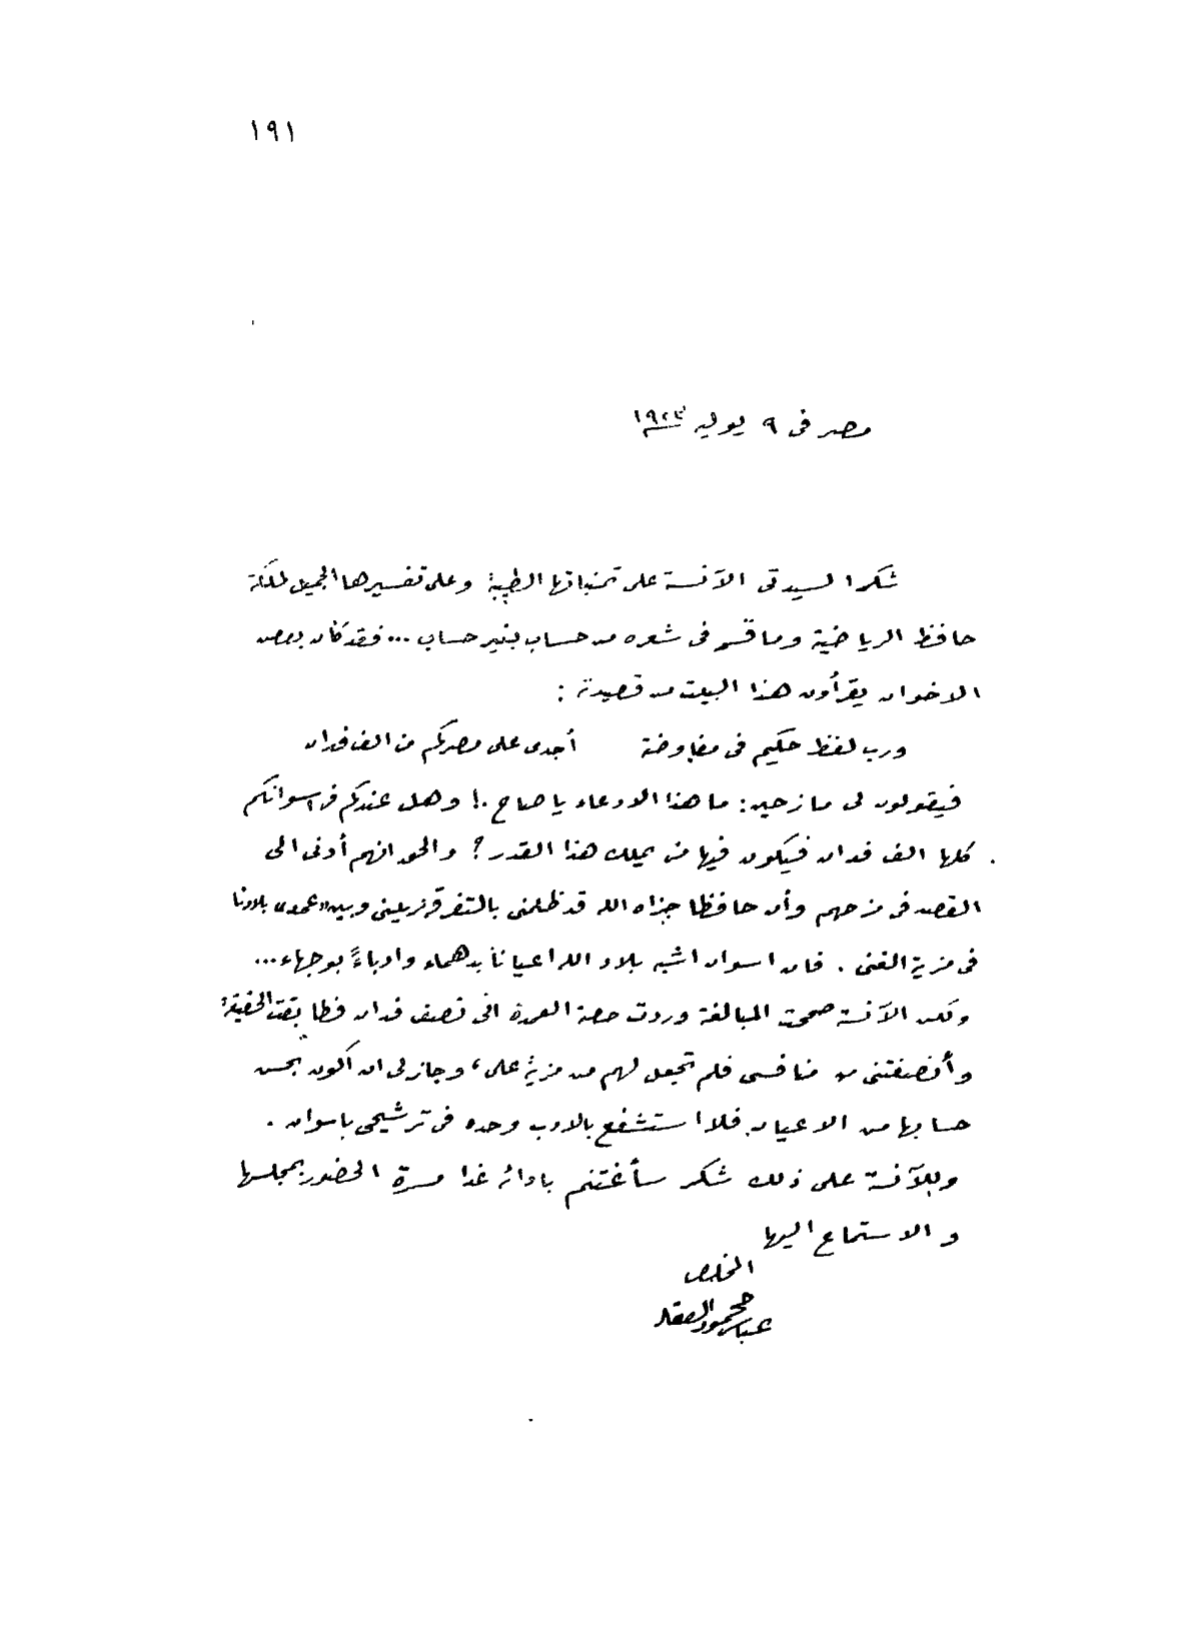 ١٩١
مصر فى ٩ يوليه ١٩٢٣
شكرا لسيدتى الآنسة على تمنياتها الطيبة وعلى تفسيرها الجميل لملكة
حافظ الرياضية وما قسم فى شعره من حساب بغير حساب ... فقد كان بعض
الاخوان يقرأون هذا البيت من قصيدته :
ورب لفظ حكيم فى مفاوضة أجدى على مصركم من الف فدان
فيقولون لى مازحين : ما هذا الادعاء يا صاح .! وهل عندكم فى اسوانكم
كلها الف فدان فيكون فيها من يملك هذا القدر ؟ والحق انهم أدنى الى
القصد فى مزحهم وأن حافظا جزاه الله قد ظلمنى بالتفرقة بينى وبين عمدى بلادنا
فى مزية الغنى . فان اسوان اشبه بلاد الله اعيانا بدهماء وادباءً بوجهاء ...
ولكن الآنسة صححت المبالغة وردت حصة العمدة الى نصف فدان فطابقت الحقيقة
وأنصفتنى من منافسى فلم تجعل لهم من مزية على ، وجاز لى ان اكون بحسن
حسابها من الاعيان فلا استشفع بالادب وحده فى ترشيحى باسوان .
وللآنسة على ذلك شكر سأغتنم بادائه غدا مسرة الحضور بمجلسها
والاستماع اليها
المخلص
عباس محمود العقاد